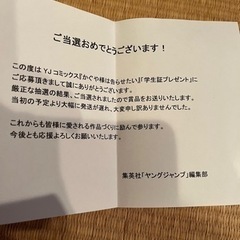 ご当選おめでとうございます！
この度はＹＪコミックス『かぐや様は告らせたい』「学生証プレゼント」に
ご応募頂きまして誠にありがとうございます。
厳正な抽選の結果、ご当選されましたので賞品をお送りいたします。
当初の予定より大幅に発送が遅れ、大変申し訳ありませんでした。
これからも皆様に愛される作品づくりに励んで参ります。
今後とも応援よろしくお願いいたします。
集英社「ヤングジャンプ」編集部